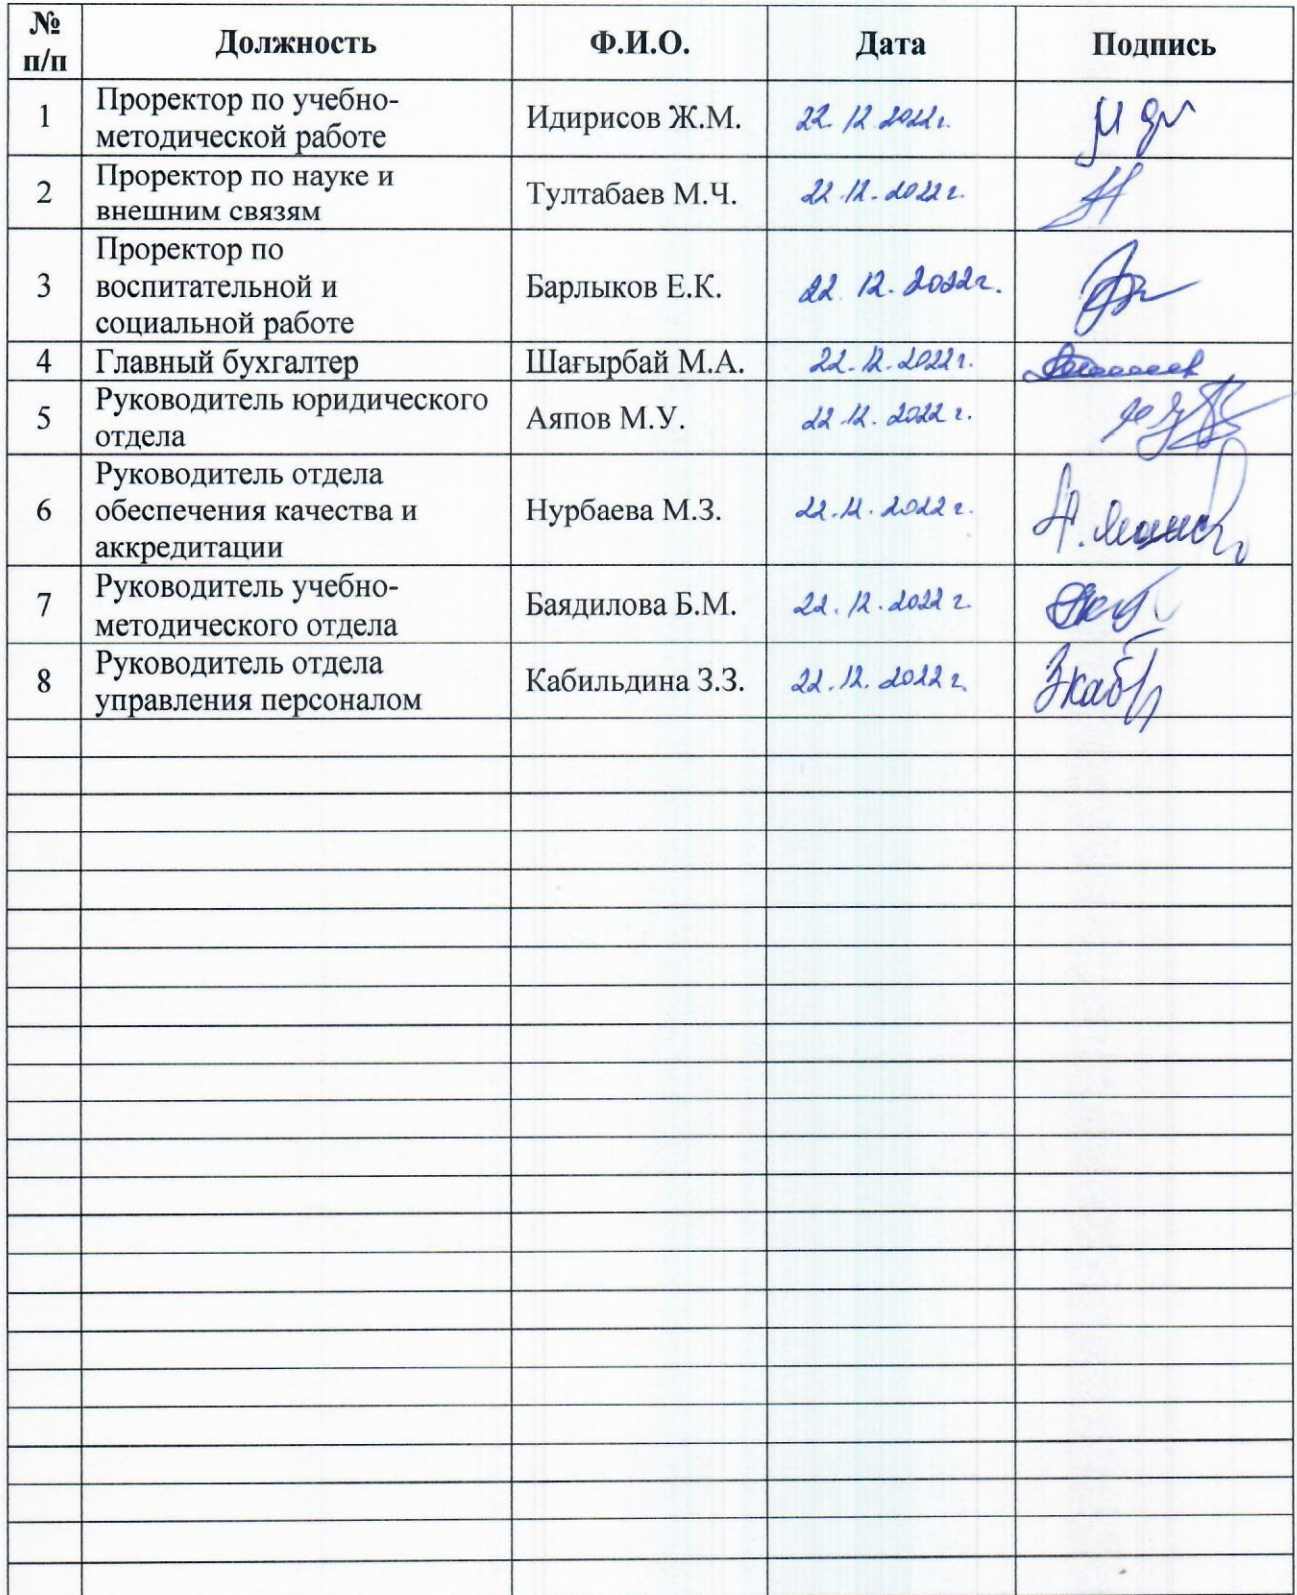 № п/п Должность Ф.И.О. Дата Подпись
1 Проректор по учебно-
методической работе Идирисов Ж.М. 22.12.2022г.
2 Проректор по науке и
внешним связям Тултабаев М.Ч. 22.12.2022 г.
3 Проректор по
воспитательной и
социальной работе Барлыков Е.К. 22.12.2022г.
4 Главный бухгалтер Шағырбай М.А. 22.12.2022г.
5 Руководитель юридического
отдела Аяпов М.У. 22.12.2022 г.
6 Руководитель отдела
обеспечения качества и
аккредитации Нурбаева М.З. 22.12.2022 г.
7 Руководитель учебно-
методического отдела Баядилова Б.М. 22.12.2022 г.
8 Руководитель отдела
управления персоналом Кабильдина З.З. 22.12.2022 г.